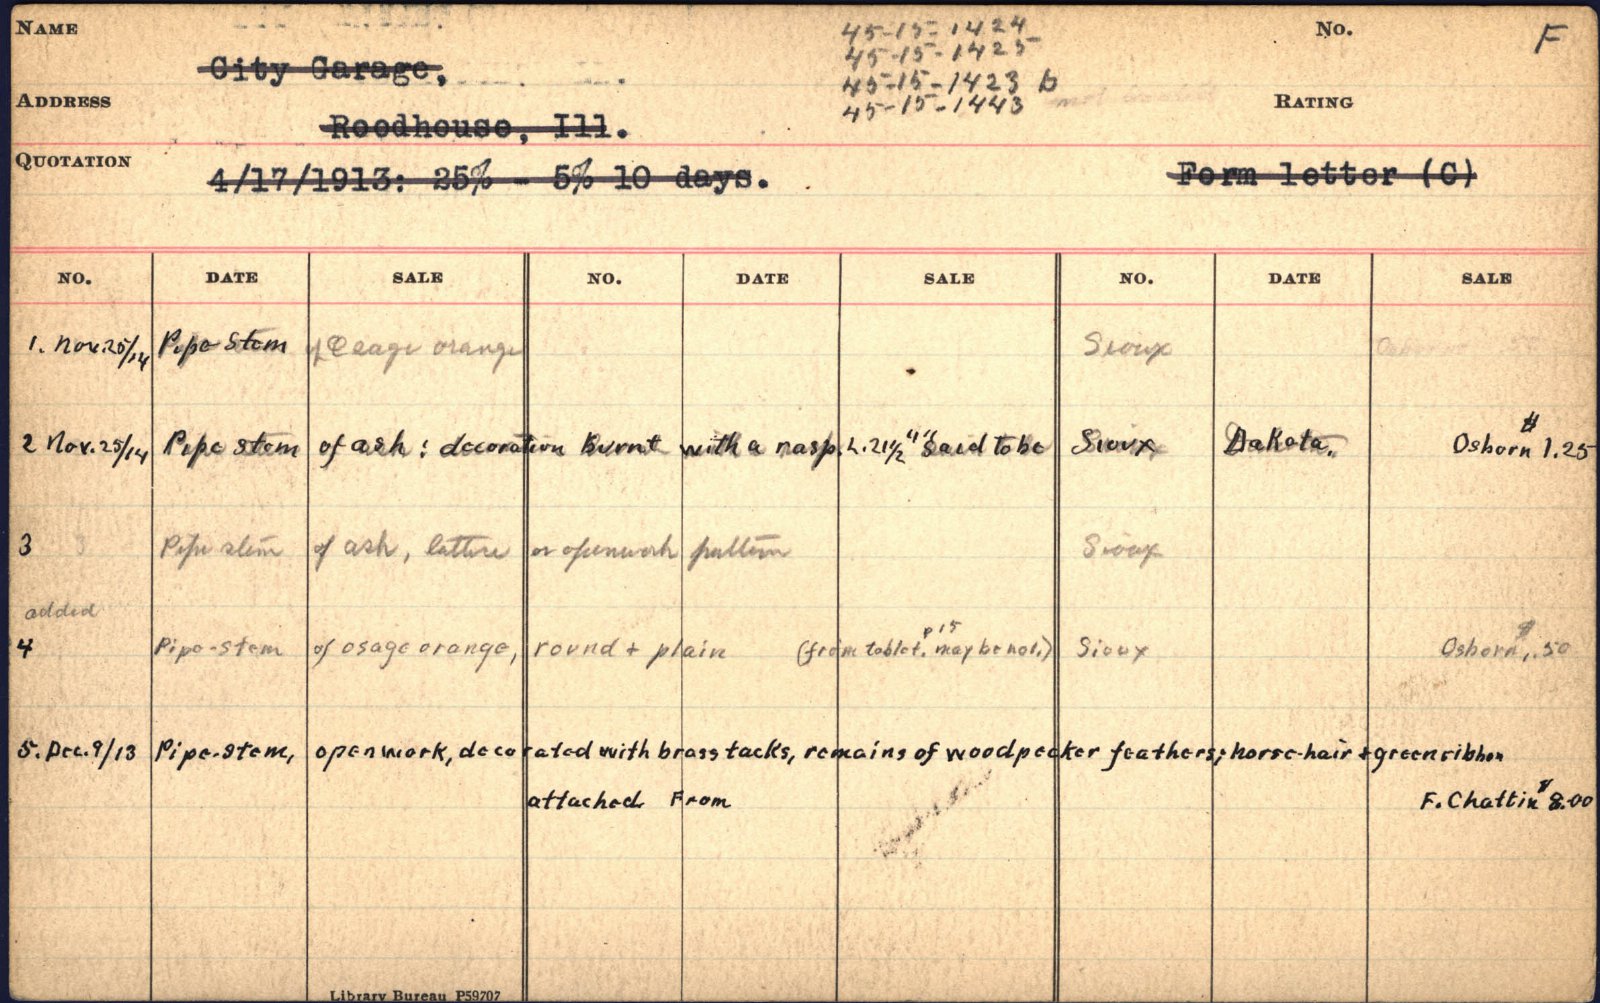 NAME
City Garage,
45-15-1424
45-15-1425
45-15-1423 b
45-15-1443
No.
F
ADDRESS
Roodhouse, Ill.
RATING
QUOTATION
4/17/1913: 25% - 5% 10 days.
Form letter (C)
NO. DATE SALE NO. DATE SALE NO. DATE SALE
1. Nov.25/14 Pipe Stem of Osage orange Sioux
2 Nov.25/14 Pipe stem of ash: decoration burnt with a rasp. L.21 1/2" Said to be Sioux Dakota. Osborn $1.25
3 Pipe stem of ash, lattice or openwork pattern Sioux
added
4 Pipe-stem of osage orange, round + plain (from tablet. p15 may be not.) Sioux Osborn, $.50
5. Dec.9/13 Pipe-stem, openwork, decorated with brass tacks, remains of woodpecker feathers; horse-hair + green ribbon
attached From F. Chattin $8.00
Library Bureau P59707